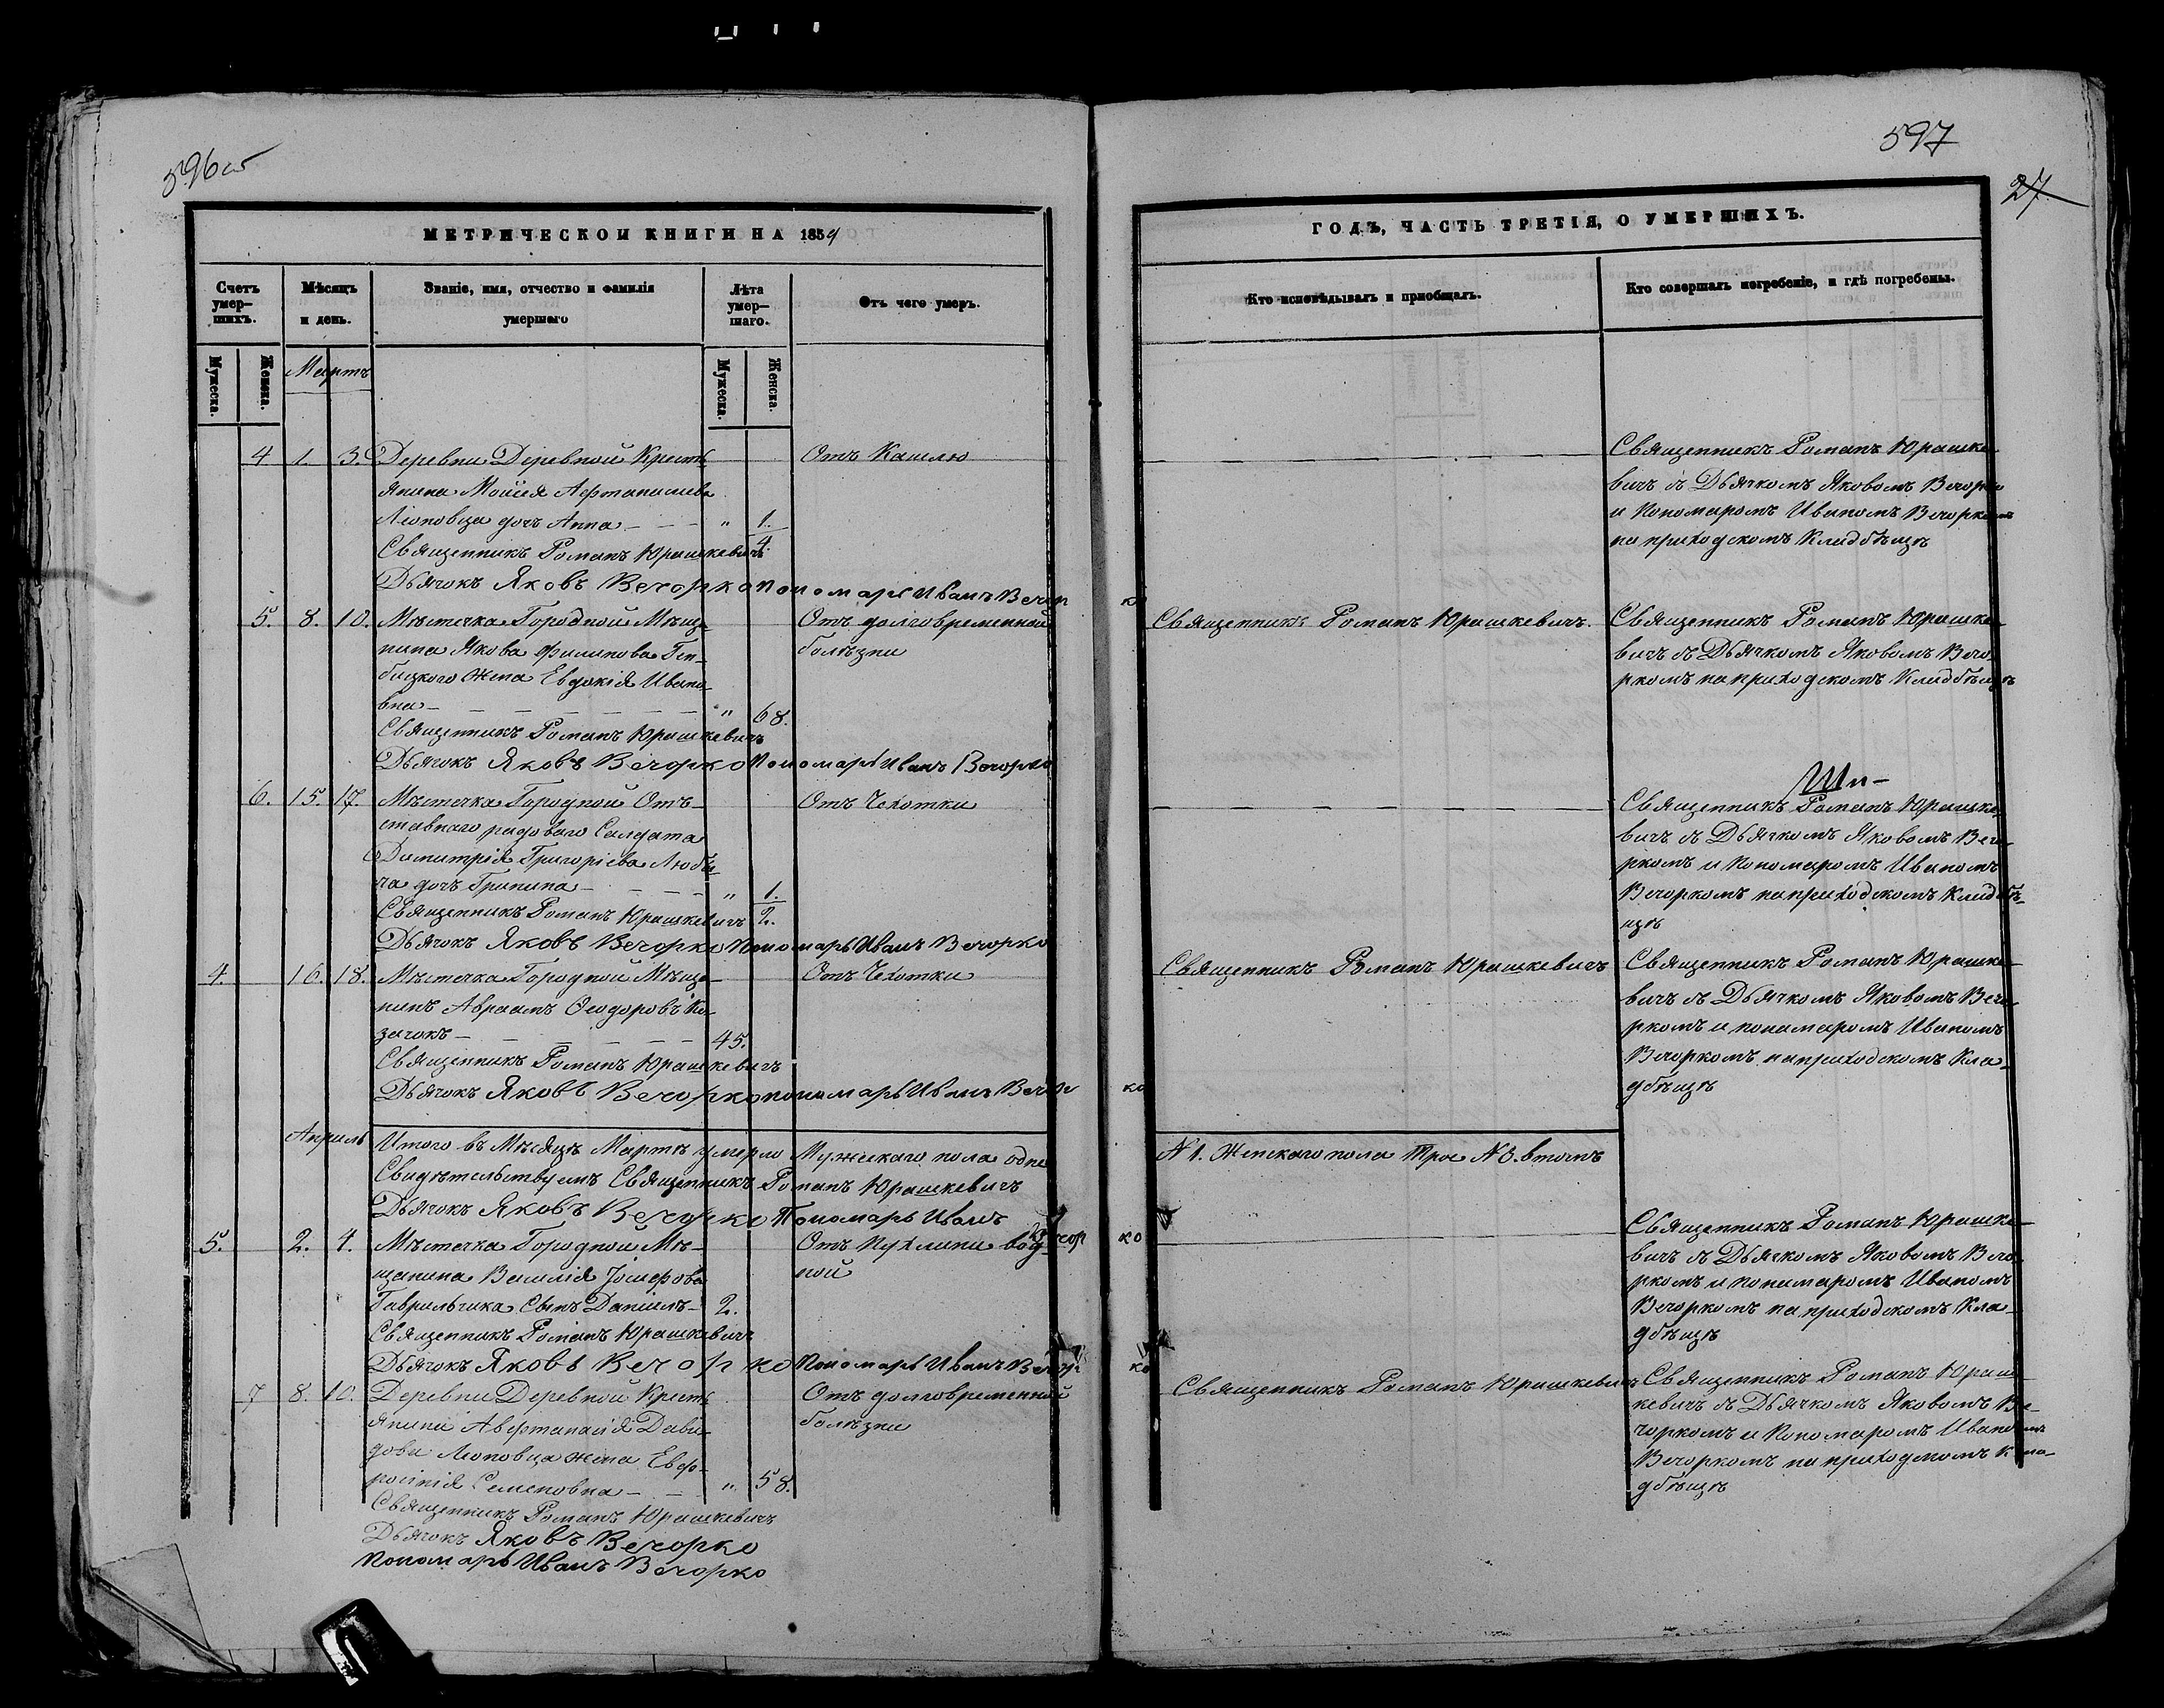 596 об
МЕТРИЧЕСКОИ КНИГИ НА 1859
Счетъ умер-шихъ.
Мѣсяцъ и день.
Званіе, имя, отчество и фамилія умершаго
Лѣта умер-шаго.
Отъ чего умеръ.
Мужеска.
Женска.
Мартъ
Мужеска.
Женска.
4 1. 3. Деревни Деревной Кресть- Отъ Кашлю
янина Мойсея Афтанасиева
Леоновца дочь Анна - - - " 1/4.
Священникъ Романъ Юрашкевичъ
Дьячокъ Яковъ Вечорко Пономарь Иванъ Вечор
5. 8. 10. Мѣстечка Городной Мѣща- Отъ долговременной
нина Якова Филипова Геп- болѣзни
бицкого жена Евдокія Ивано-
вна - - - - - - - " 68.
Священникъ Романъ Юрашкевичъ
Дьячокъ Яковъ Вечорко Пономарь Иванъ Вечорко
6. 15. 17. Мѣстечка Городной Отъ- Отъ Чехотки
ставнаго рядоваго Салдата
Димитрія Григоріева Любы-
ча дочь Грипина - - - - " 1/2.
Священникъ Романъ Юрашкевичъ
Дьячокъ Яковъ Вечорко Пономарь Иванъ Вечорко
4. 16. 18. Мѣстечка Городной Мѣща- Отъ Чехотки
нинъ Авраамъ Ѳеодоровъ Ко-
зачокъ - - - - - - 45.
Священникъ Романъ Юрашкевичъ
Дьячокъ Яковъ Вечорко пономарь Иванъ Вечор
Апрель
Итого въ Мѣсяцѣ Мартѣ умерло Мужескаго пола одне
Свидѣтельствуемъ Священникъ Романъ Юрашкевичъ
Дьячокъ Яковъ Вечорко Пономарь Иванъ
Вечор
5. 2. 4. Мѣстечка Городной Мѣ- Отъ Пухлини вод-
щанина Василія Іосифова ной
Гаврильчика Сынъ Даніилъ - 2.
Священникъ Романъ Юрашкевичъ
Дьячокъ Яковъ Вечорко Пономарь Иванъ Вечор
7 8. 10. Деревни Деревной Кресть- Отъ долговременной
янина Афтанасія Дави- болѣзни
дова Леоновца жена Евф-
росинія Семеновна - - " 58.
Священникъ Романъ Юрашкевичъ
Дьячокъ Яковъ Вечорко
Пономарь Иванъ Вечорко
597
27
ГОДЪ, ЧАСТЬ ТРЕТІЯ, О УМЕРШИХЪ.
Кто исповѣдывалъ и пріобщалъ.
Кто совершалъ погребеніе, и гдѣ погребены.
Священникъ Романъ Юрашке-
вичъ съ Дьячкомъ Яковомъ Вечорко
и Пономаромъ Иваномъ Вечоркомъ
на приходскомъ Кладбѣщѣ
ко
Священникъ Романъ Юрашкевичъ. Священникъ Романъ Юрашке-
вичъ съ Дьячкомъ Яковомъ Вечо-
ркомъ на приходскомъ Кладбѣщѣ
Священникъ Романъ Юрашке-
вичъ съ Дьячкомъ Яковомъ Вечо-
ркомъ и Пономаромъ Иваномъ
Вечоркомъ на приходскомъ Кладбѣ-
щѣ
Священникъ Романъ Юрашкевичъ Священникъ Романъ Юрашке-
вичъ съ Дьячкомъ Яковомъ Вечо-
ркомъ и понамаромъ Иваномъ
Вечоркомъ на приходскомъ Кла-
дбѣщѣ
ко
N 1. Женскаго пола Трое N 3. втомъ
ко
Священникъ Романъ Юрашке-
вичъ съ Дьячкомъ Яковомъ Вечо-
ркомъ и понамаромъ Иваномъ
Вечоркомъ на приходскомъ Кла-
дбѣщѣ
ко
Священникъ Романъ Юрашкевичъ Священникъ Романъ Юраш-
кевичъ съ Дьячкомъ Яковомъ Ве-
чоркомъ и Пономаромъ Иваномъ
Вечоркомъ на приходскомъ Кла-
дбѣщѣ